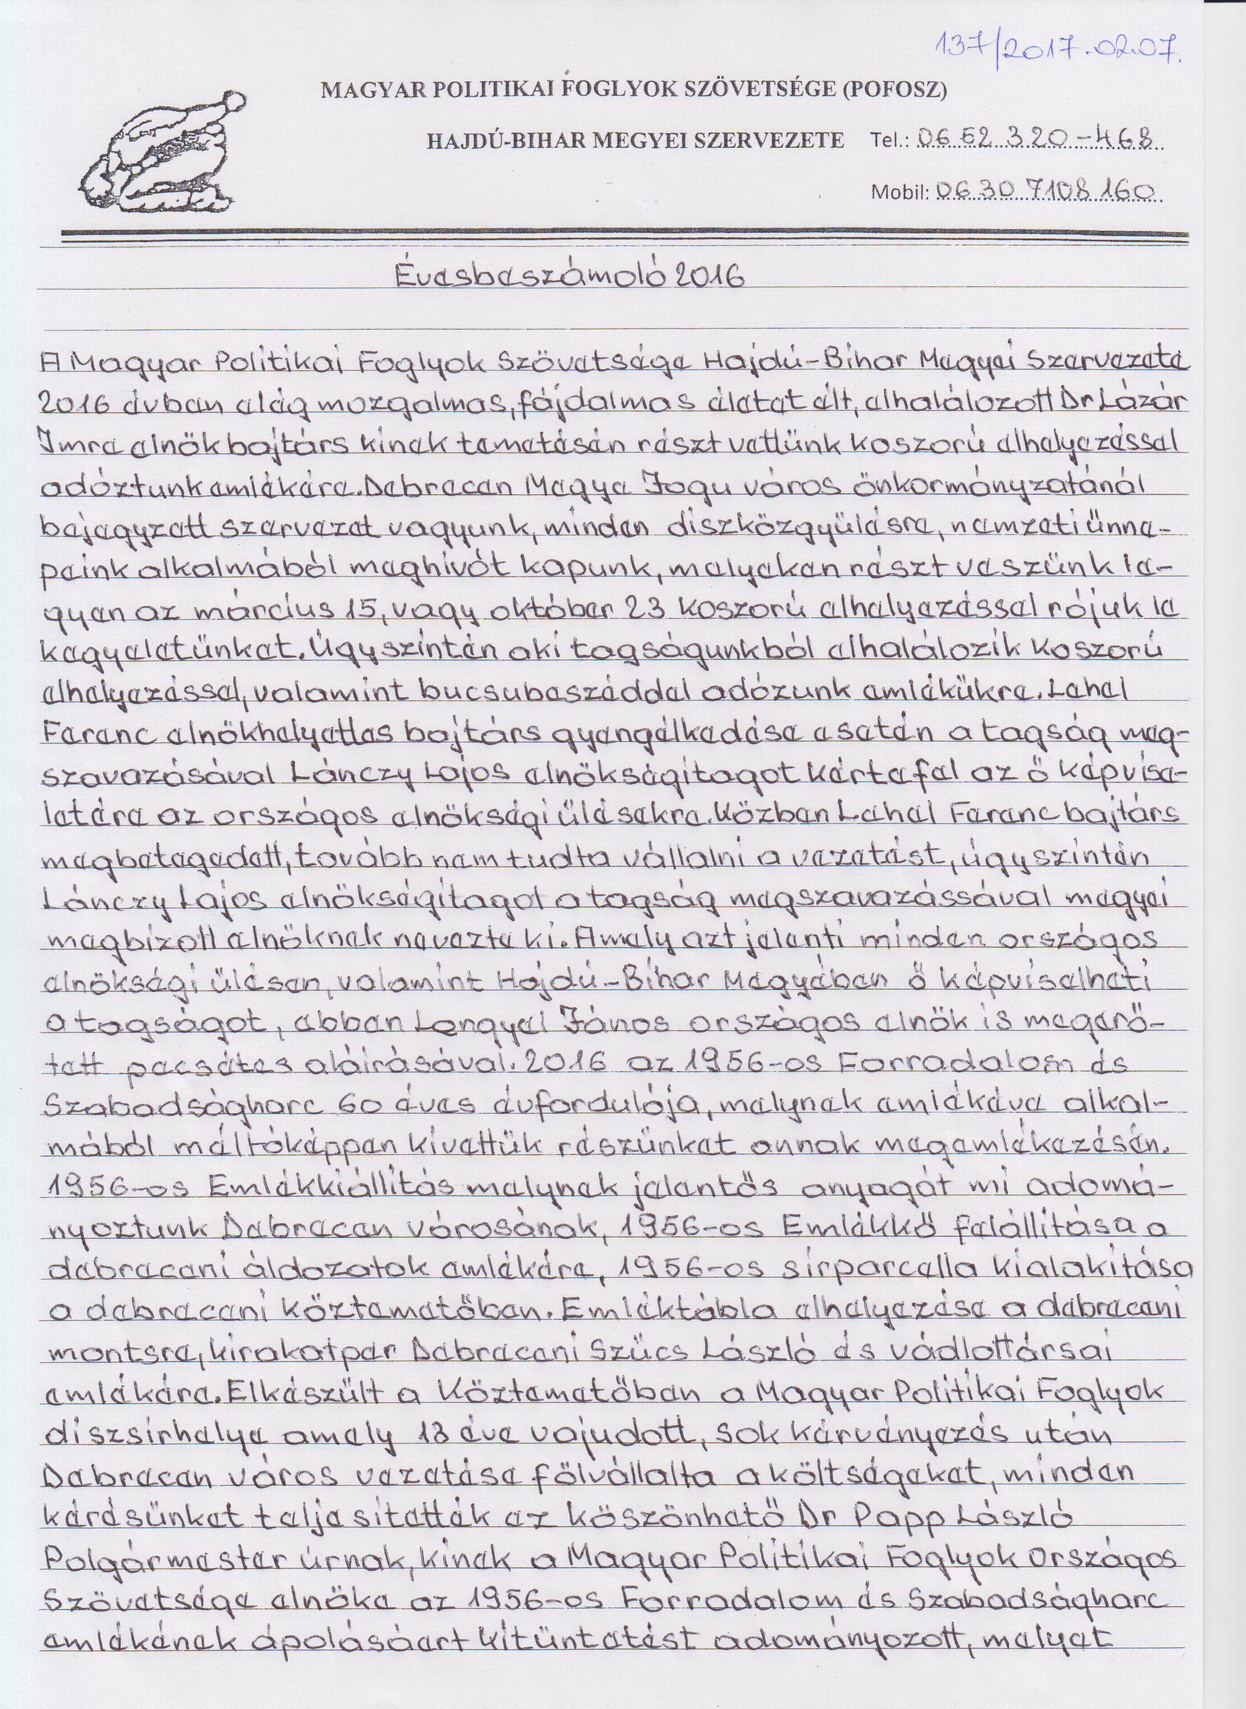 137/2017.02.07.
MAGYAR POLITIKAI FOGLYOK SZÖVETSÉGE (POFOSZ)
HAJDÚ-BIHAR MEGYEI SZERVEZETE Tel.: 06 52 320-468
Mobil: 06 30 7108 160
Évesbeszámoló 2016
A Magyar Politikai Foglyok Szövetsége Hajdú-Bihar Megyei Szervezete
2016 évben elég mozgalmas, fájdalmas életet élt, elhalálozott Dr Lázár
Imre elnök bajtárs kinek temetésén részt vettünk koszorú elhelyezéssel
adóztunk emlékére. Debrecen Megye Jogu város önkormányzatánál
bejegyzett szervezet vagyunk, minden diszközgyülésre, nemzeti ünne-
peink alkalmából meghivót kapunk, melyeken részt veszünk le-
gyen az március 15, vagy október 23 koszorú elhelyezéssel rójuk le
kegyeletünket. Úgyszintén aki tagságunkból elhalálozik koszorú
elhelyezéssel, valamint bucsubeszéddel adózunk emlékükre. Lehel
Ferenc elnökhelyettes bajtárs gyengélkedése esetén a tagság meg-
szavazásával Lánczy Lajos elnökségitagot kérte fel az ő képvise-
letére az országos elnökségi ülésekre. Közben Lehel Ferenc bajtárs
megbetegedett, tovább nem tudta vállalni a vezetést, úgyszintén
Lánczy Lajos elnökségitagot a tagság megszavazássával megyei
megbizott elnöknek nevezte ki. Amely azt jelenti minden országos
elnökségi ülésen, valamint Hajdú-Bihar Megyében ő képviselheti
a tagságot, ebben Lengyel János országos elnök is megerő-
tett pecsétes aláirásával. 2016 az 1956-os Forradalom és
Szabadságharc 60 éves évfordulója, melynek emlékéve alkal-
mából méltóképpen kivettük részünket ennek megemlékezésén.
1956-os Emlékkiállitás melynek jelentős anyagát mi adomá-
nyoztunk Debrecen városának, 1956-os Emlékkő felállitása a
debreceni áldozatok emlékére, 1956-os sirparcella kialakitása
a debreceni köztemetőben. Emléktábla elhelyezése a debreceni
montsre, kirakatper Debreceni Szücs László és vádlottársai
emlékére. Elkészült a Köztemetőben a Magyar Politikai Foglyok
diszsirhelye amely 13 éve vajudott, sok kérvényezés után
Debrecen város vezetése fölvállalta a költségeket, minden
kérésünket teljesitették ez köszönhető Dr Papp László
Polgármester úrnak, kinek a Magyar Politikai Foglyok Országos
Szövetsége elnöke az 1956-os Forradalom és Szabadságharc
emlékének ápolásáert kitüntetést adományozott, melyet